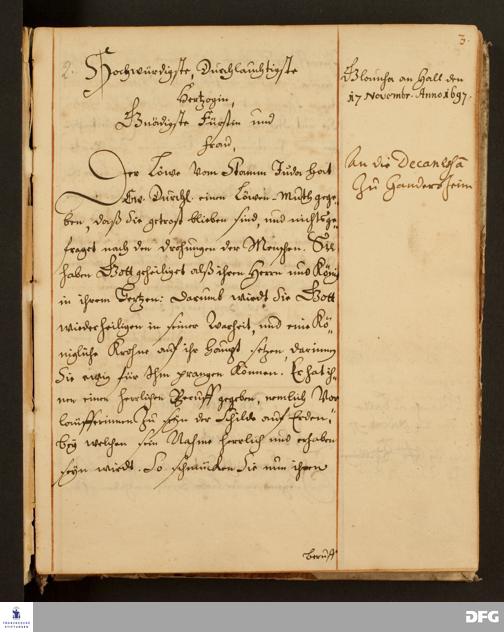 3.
2. Hochwürdigste, Durchlauchtigste
Hertzogin,
Gnädigste Fürstin und
Frau,
Der Löwe vom Stamm Juda hat
Ew. Durchl. einen Löwen-Muth gege-
ben, daß Sie getrost blieben sind, und nichts ge-
fraget nach den drohungen der Menschen. Sie
haben Gott geheiliget alß ihren Herrn und König
in ihrem Hertzen: Darumb wirdt Sie Gott
wieder heiligen in seiner Warheit, und eine Kö-
nigliche Krohne auf ihr Haupt setzen, darinnen
Sie ewig für Ihm prangen können. Er hat ih-
nen einen herrlichen Beruff gegeben, nemlich Vor-
läufferinnen zu seyn der Schilde auf Erden,
bey welchen sein Nahme herrlich und erhaben
seyn wirdt. So schmücken Sie nun ihren
beruff
Glaucha an Hall den
17 Novembr. Anno 1697.
An die Decanißa
zu Gandersheim
FRANCKESCHE
STIFTUNGEN
DFG